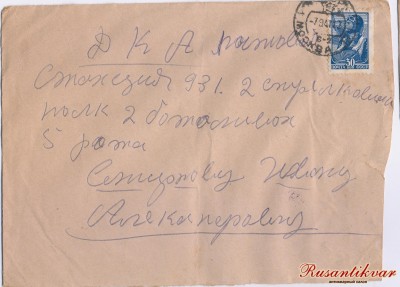 Д К А почтовая
станция 931. 2 стрелковый
полк 2 баталион
5 рота
Ивану
Александровичу
МОСКВА
30
ПОЧТА СССР
Rusantikvar
антикварный салон